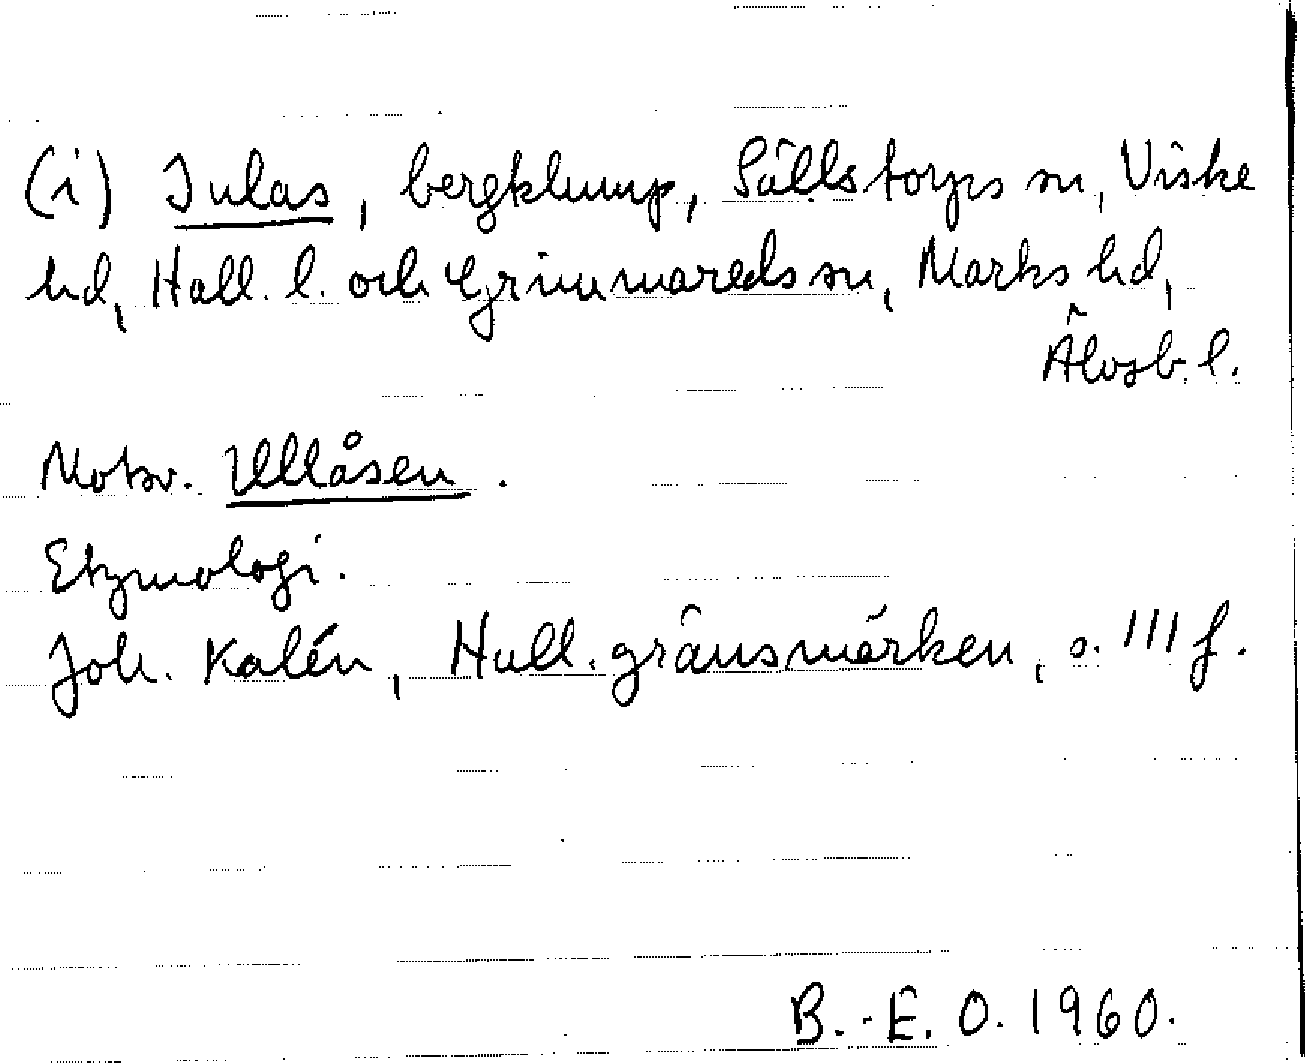 (i) Julas, bergklump, Sällstorps sn, Viske
hd, Hall. l. och Grimmareds sn, Marks hd,
Älvsb. l.
Motsv. Ullåsen.
Etymologi.
Joh. Kalén, Hall. gränsmärken, s. 111 f.
B.-E. O. 1960.